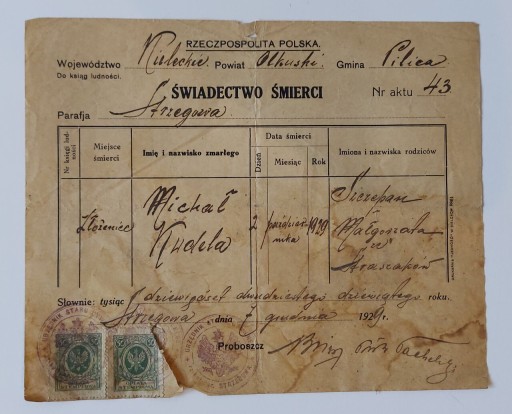 RZECZPOSPOLITA POLSKA.
Województwo Kieleckie Powiat Olkuski Gmina Pilica
Do ksiąg ludności.
ŚWIADECTWO ŚMIERCI Nr aktu 43
Parafja Strzegowa
Nr księgi ludności
Miejsce śmierci
Imię i nazwisko zmarłego
Data śmierci
Dzień Miesiąc Rok
Imiona i nazwiska rodziców
Złożeniec
Michał
Kudela
2
października
1929
Szczepan
Małgorzata
Słownie: tysiąc dziewięćset dwudziestego dziewiątego roku.
Strzegowa dnia 7 grudnia 1929 r.
Proboszcz